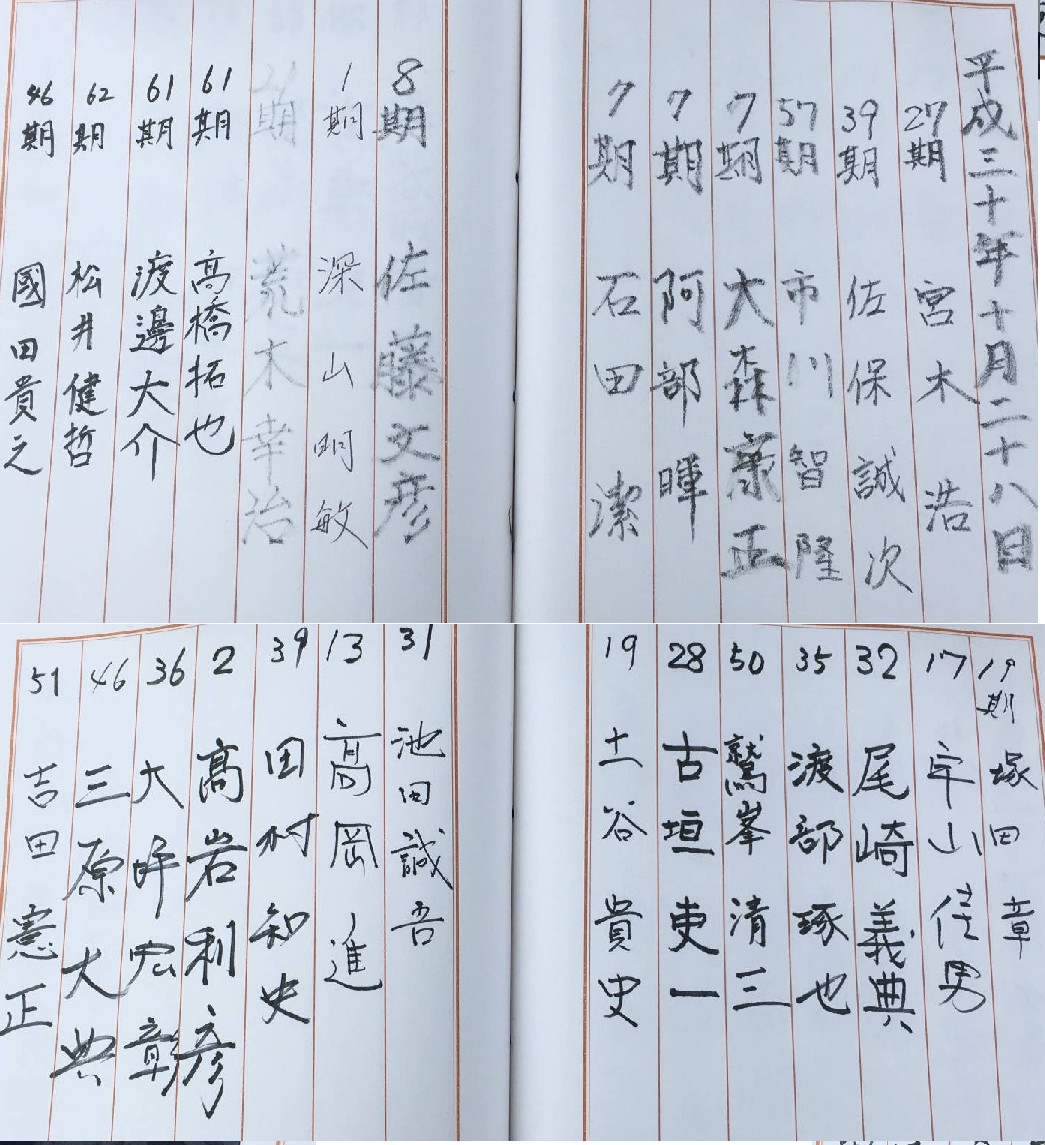 平成三十年十月二十八日
27期 宮木 浩
39期 佐保誠次
57期 市川智隆
7期 大森康正
7期 阿部暉
7期 石田 潔
8期 佐藤文彦
1期 深山明敏
21期 荒木幸治
61期 高橋拓也
61期 渡邊大介
62期 松井健哲
46期 國田貴之
19期 塚田 章
17 牟山佳男
32 尾崎義典
35 渡部琢也
50 鷲峯清三
28 古垣吏一
19 土谷貴史
31 池田誠吾
13 高岡 進
39 田村知史
2 高岩利彦
36 大坪宏彰
46 三原大典
51 吉田憲正